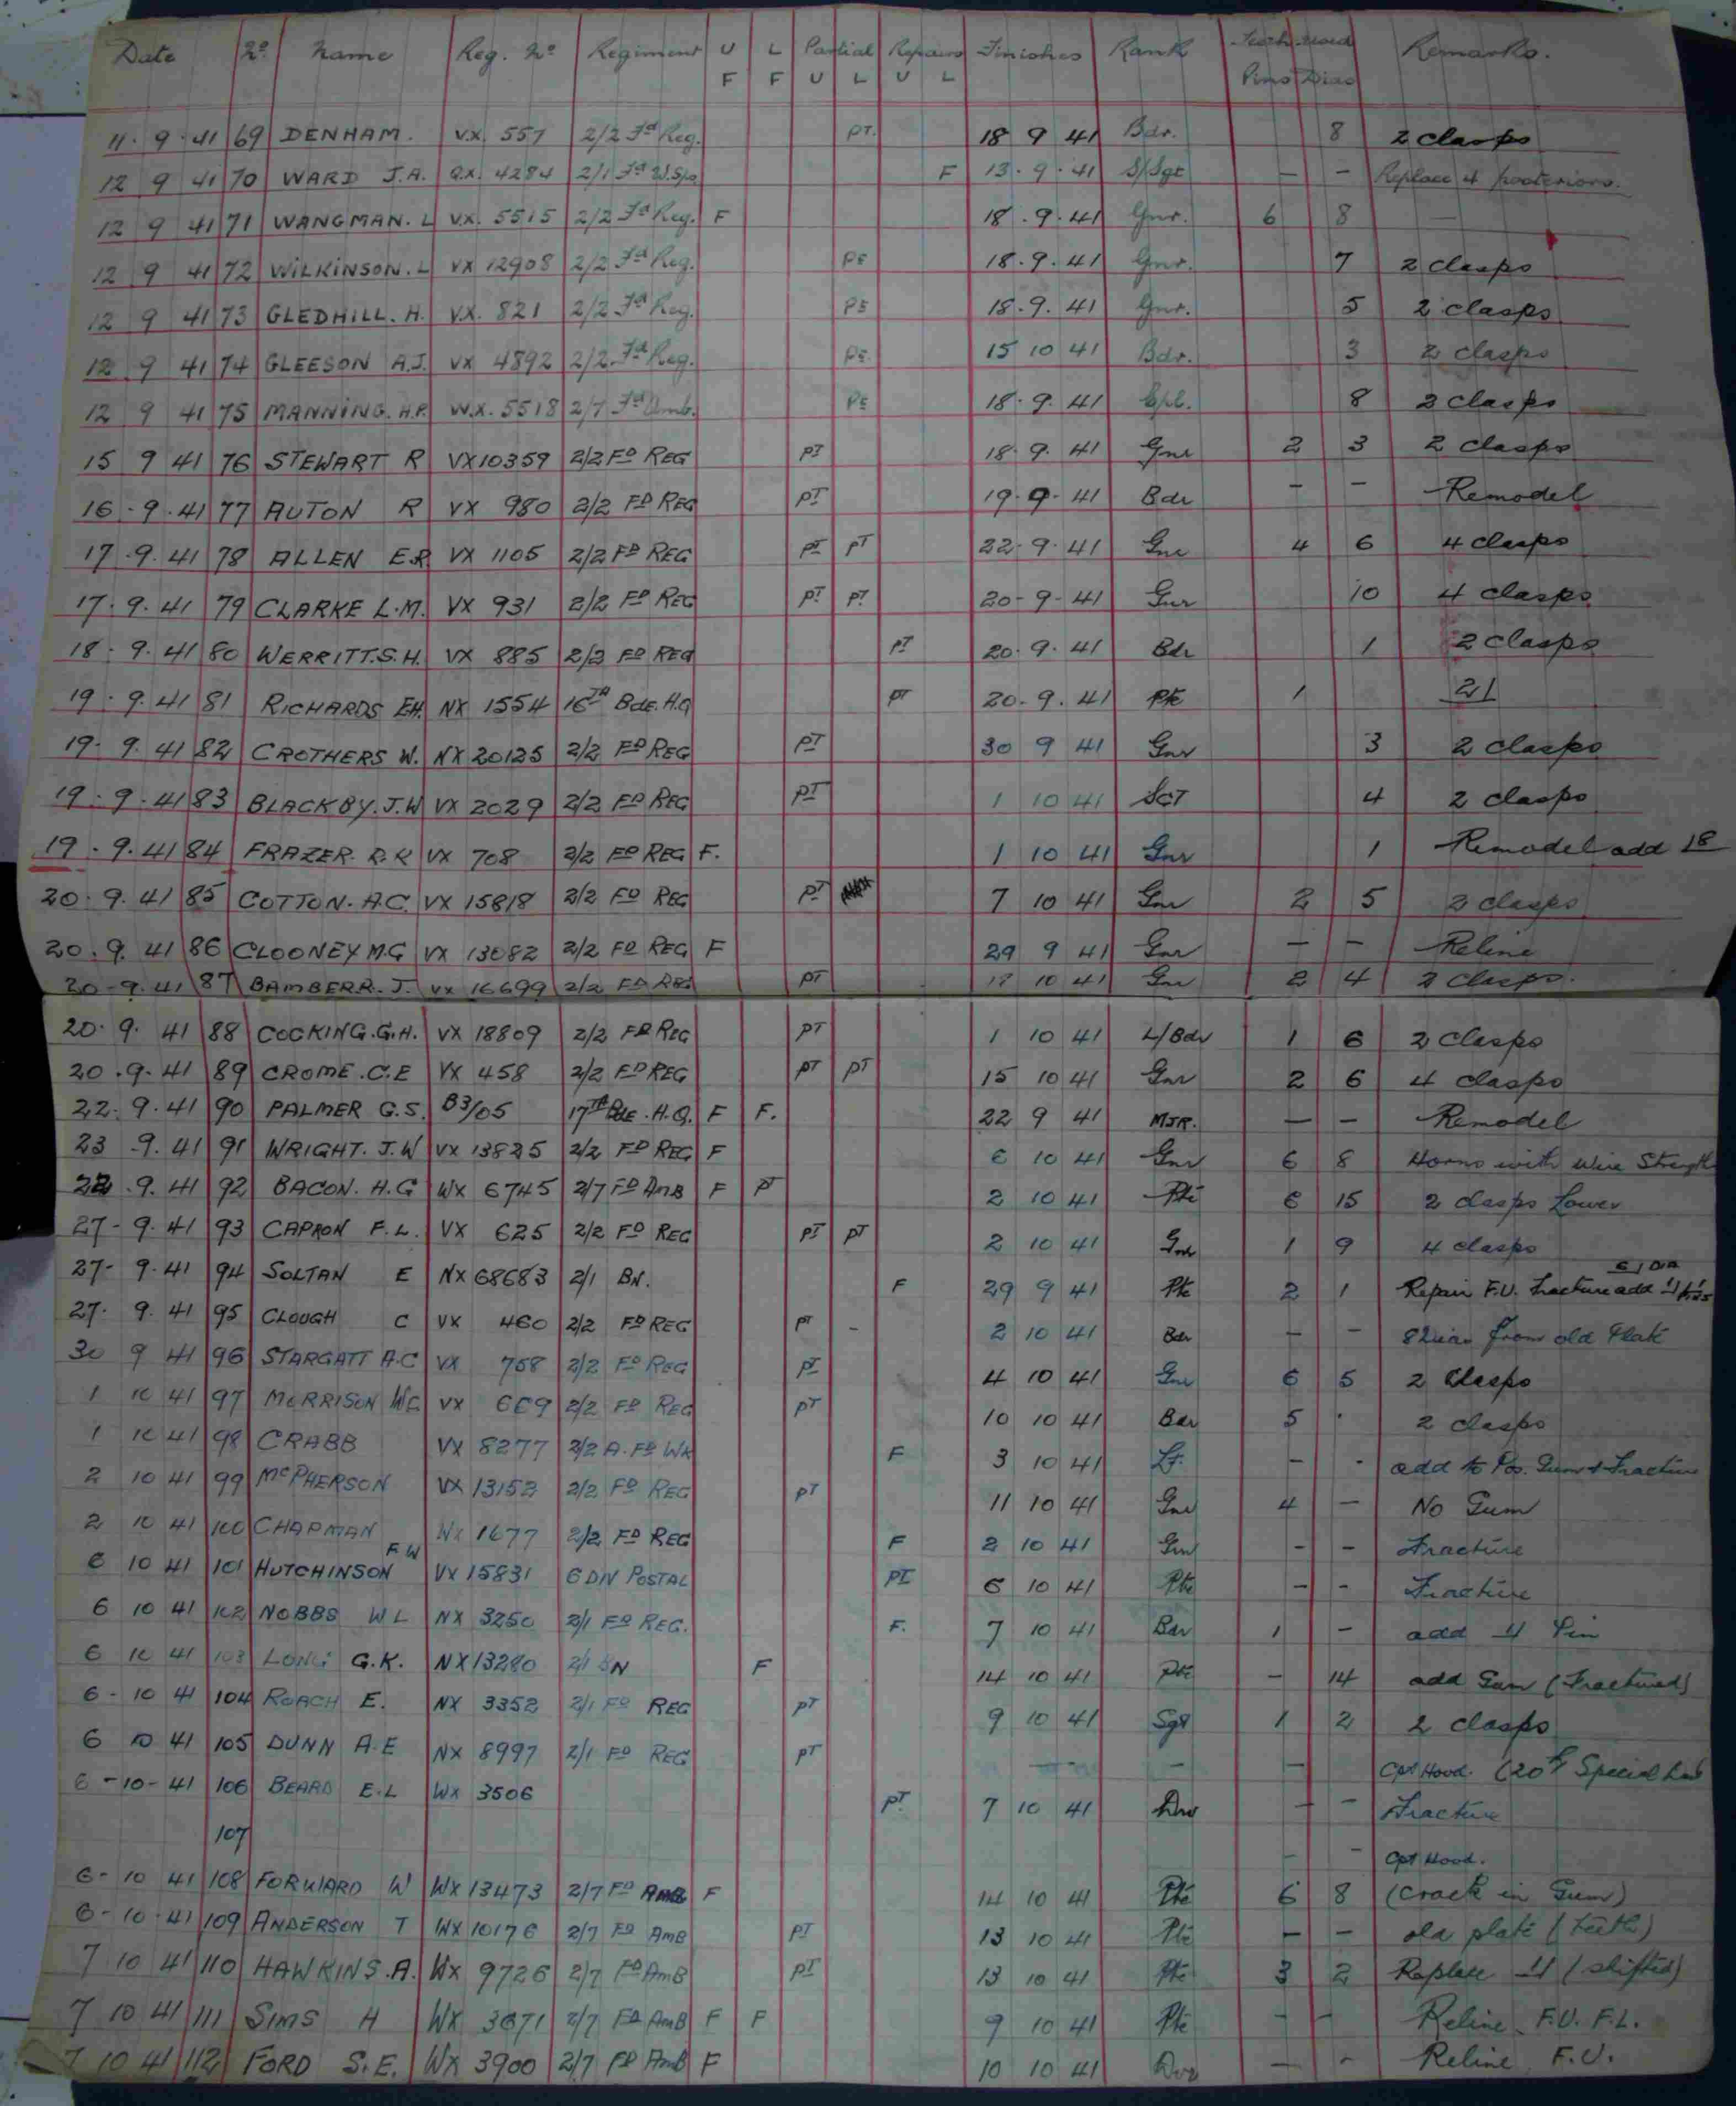 Date No Name Reg. No Regiment U L Partial Repairs Finishes Rank Teeth Used Remarks.
F F U L U L Pins Dias
11. 9. 41 69 DENHAM. VX. 557 2/2 Fd Reg. PT. 18 9 41 Bdr. 8 2 clasps
12 9 41 70 WARD J.A. QX. 4284 2/1 Fd W.Sps. F 13. 9. 41 S/Sgt — — Replace 4 posteriors.
12 9 41 71 WANGMAN. L VX. 5515 2/2 Fd Reg. F 18. 9. 41 Gnr. 6 8 —
12 9 41 72 WILKINSON. L VX 12908 2/2 Fd Reg. PT 18. 9. 41 Gnr. 7 2 clasps
12 9 41 73 GLEDHILL. H. VX. 821 2/2 Fd Reg. PT 18. 9. 41 Gnr. 5 2 clasps
12 9 41 74 GLEESON A.J. VX 4892 2/2 Fd Reg. PT. 15 10 41 Bdr. 3 2 clasps
12 9 41 75 MANNING. H.P. W.X. 5518 2/7 Fd Amb. PT 18. 9. 41 Cpl. 8 2 clasps
15 9 41 76 STEWART R VX10359 2/2 FD REG PT 18. 9. 41 Gnr 2 3 2 clasps
16. 9. 41 77 AUTON R VX 980 2/2 FD REG PT 19. 9. 41 Bdr — — Remodel
17. 9. 41 78 ALLEN E.R. VX 1105 2/2 FD REG PT PT 22. 9. 41 Gnr 4 6 4 clasps
17. 9. 41 79 CLARKE L.M. VX 931 2/2 FD REG PT PT 20-9-41 Gnr 10 4 clasps
18. 9. 41 80 WERRITT.S.H. VX 885 2/2 FD REG PT 20. 9. 41 Bdr 1 2 clasps
19. 9. 41 81 RICHARDS E.H. NX 1554 16TH Bde. H.Q PT 20. 9. 41 Pte 1 21
19. 9. 41 82 CROTHERS W. NX 20125 2/2 FD REG PT 30 9 41 Gnr 3 2 clasps
19. 9. 41 83 BLACKBY. J.W VX 2029 2/2 FD REG PT 1 10 41 SGT 4 2 clasps
19. 9. 41 84 FRAZER. R.K VX 708 2/2 FD REG F. 1 10 41 Gnr 1 Remodel add 18
20. 9. 41 85 COTTON. A.C. VX 15818 2/2 FD REG PT 7 10 41 Gnr 2 5 2 clasps
20. 9. 41 86 CLOONEY M.G VX 13082 2/2 FD REG F 29 9 41 Gnr — — Reline
20-9. 41 87 BAMBERR. J. VX 16699 2/2 FD REG PT 10 41 Gnr 2 4 2 clasps.
20. 9. 41 88 COCKING. G.H. VX 18809 2/2 FD REG PT 1 10 41 L/Bdr 1 6 2 clasps
20. 9. 41 89 CROME. C.E VX 458 2/2 FD REG PT PT 15 10 41 Gnr 2 6 4 clasps
22. 9. 41 90 PALMER G.S. B3/05 17TH Bde. H.Q. F F. 22 9 41 MJR. — — Remodel
23 .9. 41 91 WRIGHT. J.W VX 13825 2/2 FD REG F 6 10 41 Gnr 6 8 Horns with wire Strength
.9. 41 92 BACON. H.G WX 6745 2/7 FD AMB F PT 2 10 41 Pte 6 15 2 clasps Lower
27-9. 41 93 CAPRON F.L. VX 625 2/2 FD REG PT PT 2 10 41 Gnr 1 9 4 clasps
27-9. 41 94 SOLTAN E NX 68683 2/1 BN. F 29 9 41 Pte 2 1 Repair F.U. Fracture add
27. 9. 41 95 CLOUGH C VX 460 2/2 FD REG PT - 2 10 41 Bdr — — 8 dias from old Plate
30 9 41 96 STARGATT A.C VX 758 2/2 FD REG PT 4 10 41 Gnr 6 5 2 clasps
1 10 41 97 MORRISON VX 669 2/2 FD REG PT 10 10 41 Bdr 5 . 2 clasps
1 10 41 98 CRABB VX 8277 2/2 A. FD WK F 3 10 41 Lt. - - add to Pos. Gum + Fracture
2 10 41 99 McPHERSON VX 13152 2/2 FD REG PT 11 10 41 Gnr 4 — No Gum
2 10 41 100 CHAPMAN WX 1677 2/2 FD REG F 2 10 41 Gnr - — Fracture
6 10 41 101 HUTCHINSON F.W VX 15831 6 DIV POSTAL PT 6 10 41 Pte — — Fracture
6 10 41 102 NOBBS W L NX 3250 2/1 FD REG. F. 7 10 41 Bdr 1 — add 4 Pin
6 10 41 103 LONG G.K. NX13280 2/1 BN F 14 10 41 Pte — 14 add Gum (Fractured)
6-10 41 104 ROACH E. NX 3352 2/1 FD REG PT 9 10 41 Sgt 1 2 2 clasps
6 10 41 105 DUNN A.E NX 8997 2/1 FD REG PT — — — Cpt Hood. (20th Special
6-10-41 106 BEARD E.L WX 3506 PT. 7 10 41 Dvr — — Fracture
107 — — Cpt Hood.
6-10 41 108 FORWARD W WX 13473 2/7 FD AMB F 14 10 41 Pte 6 8 (crack in Gum)
6-10-41 109 ANDERSON T WX 10176 2/7 FD AMB PT 13 10 41 Pte — — old plate (teeth)
7 10 41 110 HAWKINS. A. WX 9726 2/7 FD AMB PT 13 10 41 Pte 3 2 Replace 4 (shifted)
7 10 41 111 SIMS H WX 3671 2/7 FD AMB F F 9 10 41 Pte — — Reline F.U. F.L.
7 10 41 112 FORD S.E. WX 3900 2/7 FD AMB F 10 10 41 Dvr — — Reline F.U.